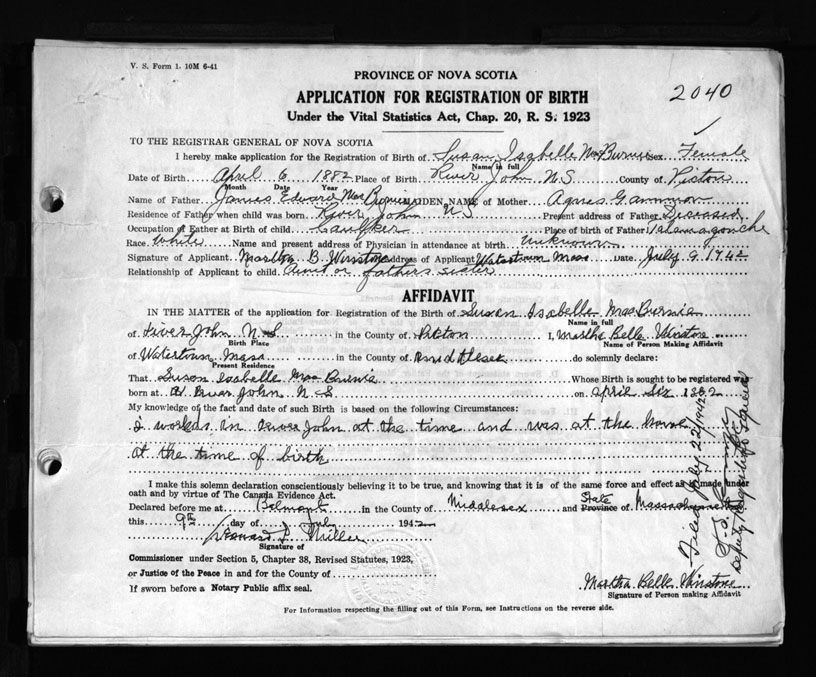 V. S. Form 1. 10M 6-41
PROVINCE OF NOVA SCOTIA
2040
APPLICATION FOR REGISTRATION OF BIRTH
Under the Vital Statistics Act, Chap. 20, R. S. 1923
TO THE REGISTRAR GENERAL OF NOVA SCOTIA
I hereby make application for the Registration of Birth of Susan Isabelle MacBurnie Sex Female
Name in full
Date of Birth April 6 1882 Place of Birth River John N.S County of Pictou
Month Date Year
Name of Father James Edward MacBurnie MAIDEN NAME of Mother Agnes Gammon
Residence of Father when child was born River John N S Present address of Father Deceased
Occupation of Father at Birth of Child Caulker Place of birth of Father
Race White Name and present address of Physician in attendance at birth Unknown
Signature of Applicant Martha B. Winstone Address of Applicant Watertown Mass Date July 9 1942
Relationship of Applicant to child Aunt or fathers sister
AFFIDAVIT
IN THE MATTER of the application for Registration of the Birth of Susan Isabelle MacBurnie
Name in full
of River John N.S in the County of Pictou I, Martha Belle Winstone
Birth Place Name of Person Making Affidavit
of Watertown Mass in the County of Middlesex do solemnly declare:
Present Residence
That Susan Isabelle MacBurnie Whose Birth is sought to be registered was
born at River John N. S on April Six 1882
My knowledge of the fact and date of such Birth is based on the following Circumstances:
I worked in River John at the time and was at the house
at the time of birth
I make this solemn declaration conscientiously believing it to be true, and knowing that it is of the same force and effect as if made under
oath and by virtue of The Canada Evidence Act.
Declared before me at Belmont in the County of Middlesex and State Province of Massachusetts
this 9th day of July 1942
Miller
Signature of
Commissioner under Section 5, Chapter 38, Revised Statutes, 1923,
or Justice of the Peace in and for the County of
If sworn before a Notary Public affix seal.
Martha Belle Winstone
Signature of Person making Affidavit
For Information respecting the filling out of this Form, see Instructions on the reverse side.
Filed July 22/1942
Deputy Registrar General